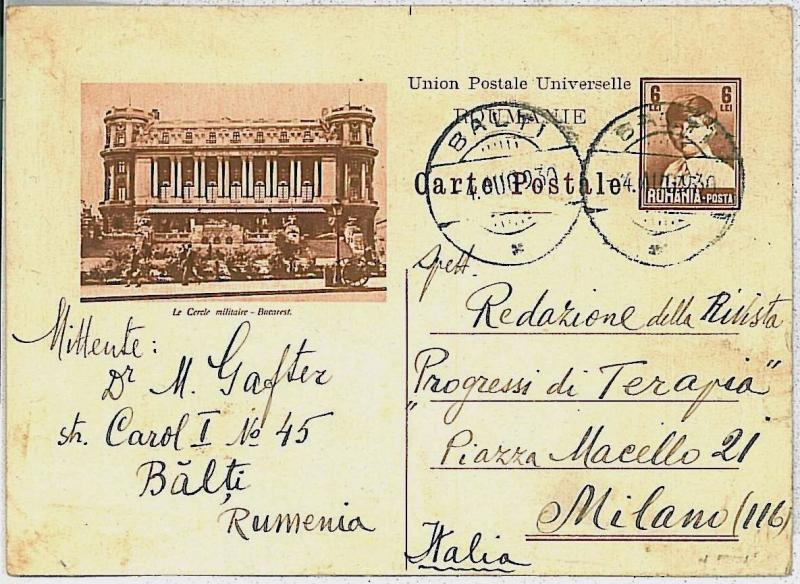 Union Postale Universelle
ROUMANIE
Carte Postale
6 LEI 6 LEI
ROMÂNIA-POSTA
BALTI
4. AUG 930
BALTI
4. AUG 930
Le Cercle militaire - Bucarest.
Mittente:
Dr M. Gafter
str. Carol I No 45
Bălți
Rumenia
Spett.
Redazione della Rivista
"Progressi di Terapia"
Piazza Macello 21
Milano (116)
Italia